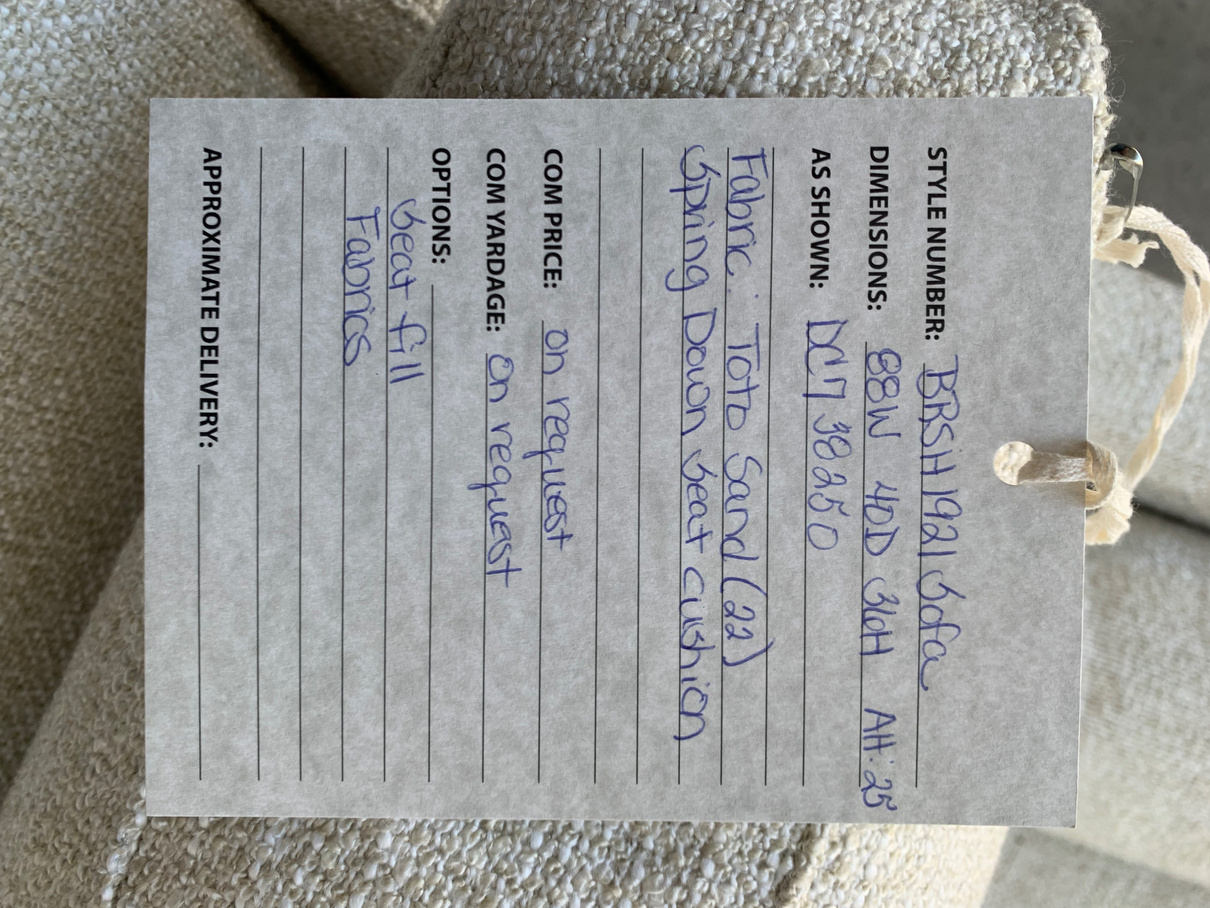 STYLE NUMBER: BRSH1921 Sofa
DIMENSIONS: 88W 40D 36H AH: 25
AS SHOWN: DC7 38250
Fabric: Toto Sand (22)
Spring Down Seat cushion
COM PRICE: on request
COM YARDAGE: on request
OPTIONS:
Seat fill
Fabrics
APPROXIMATE DELIVERY: